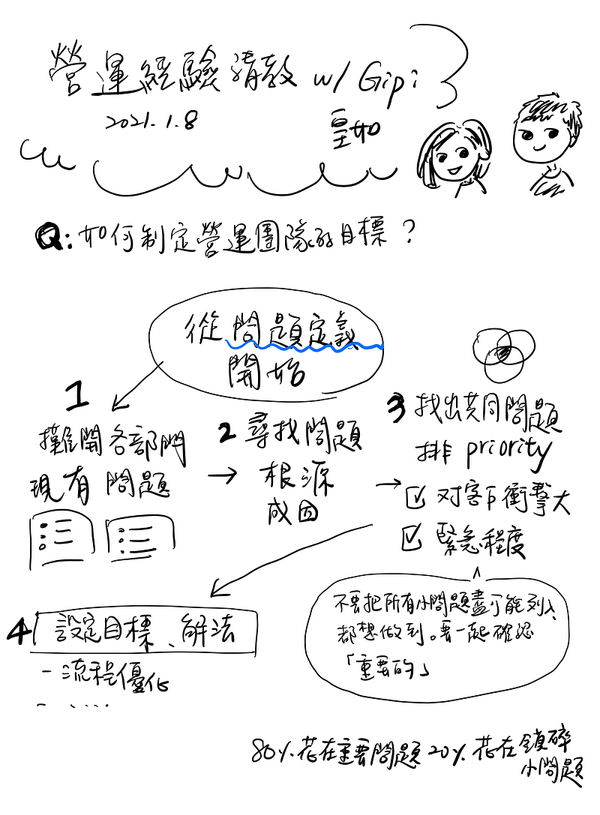 營運經驗請教 w/ Gipi
2021.1.8
皇如
Q:如何制定營運團隊的目標?
從問題定義
開始
1
攤開各部門
現有問題
2 尋找問題
→ 根源
成因
3 找出共同問題
排 priority
→ ☑ 对客戶衝擊大
☑ 緊急程度
不要把所有小問題盡可能列入、
都想做到。要一起確認
「重要的」
4 設定目標、解法
- 流程優化
80%花在重要問題 20%花在鎖碎
小問題